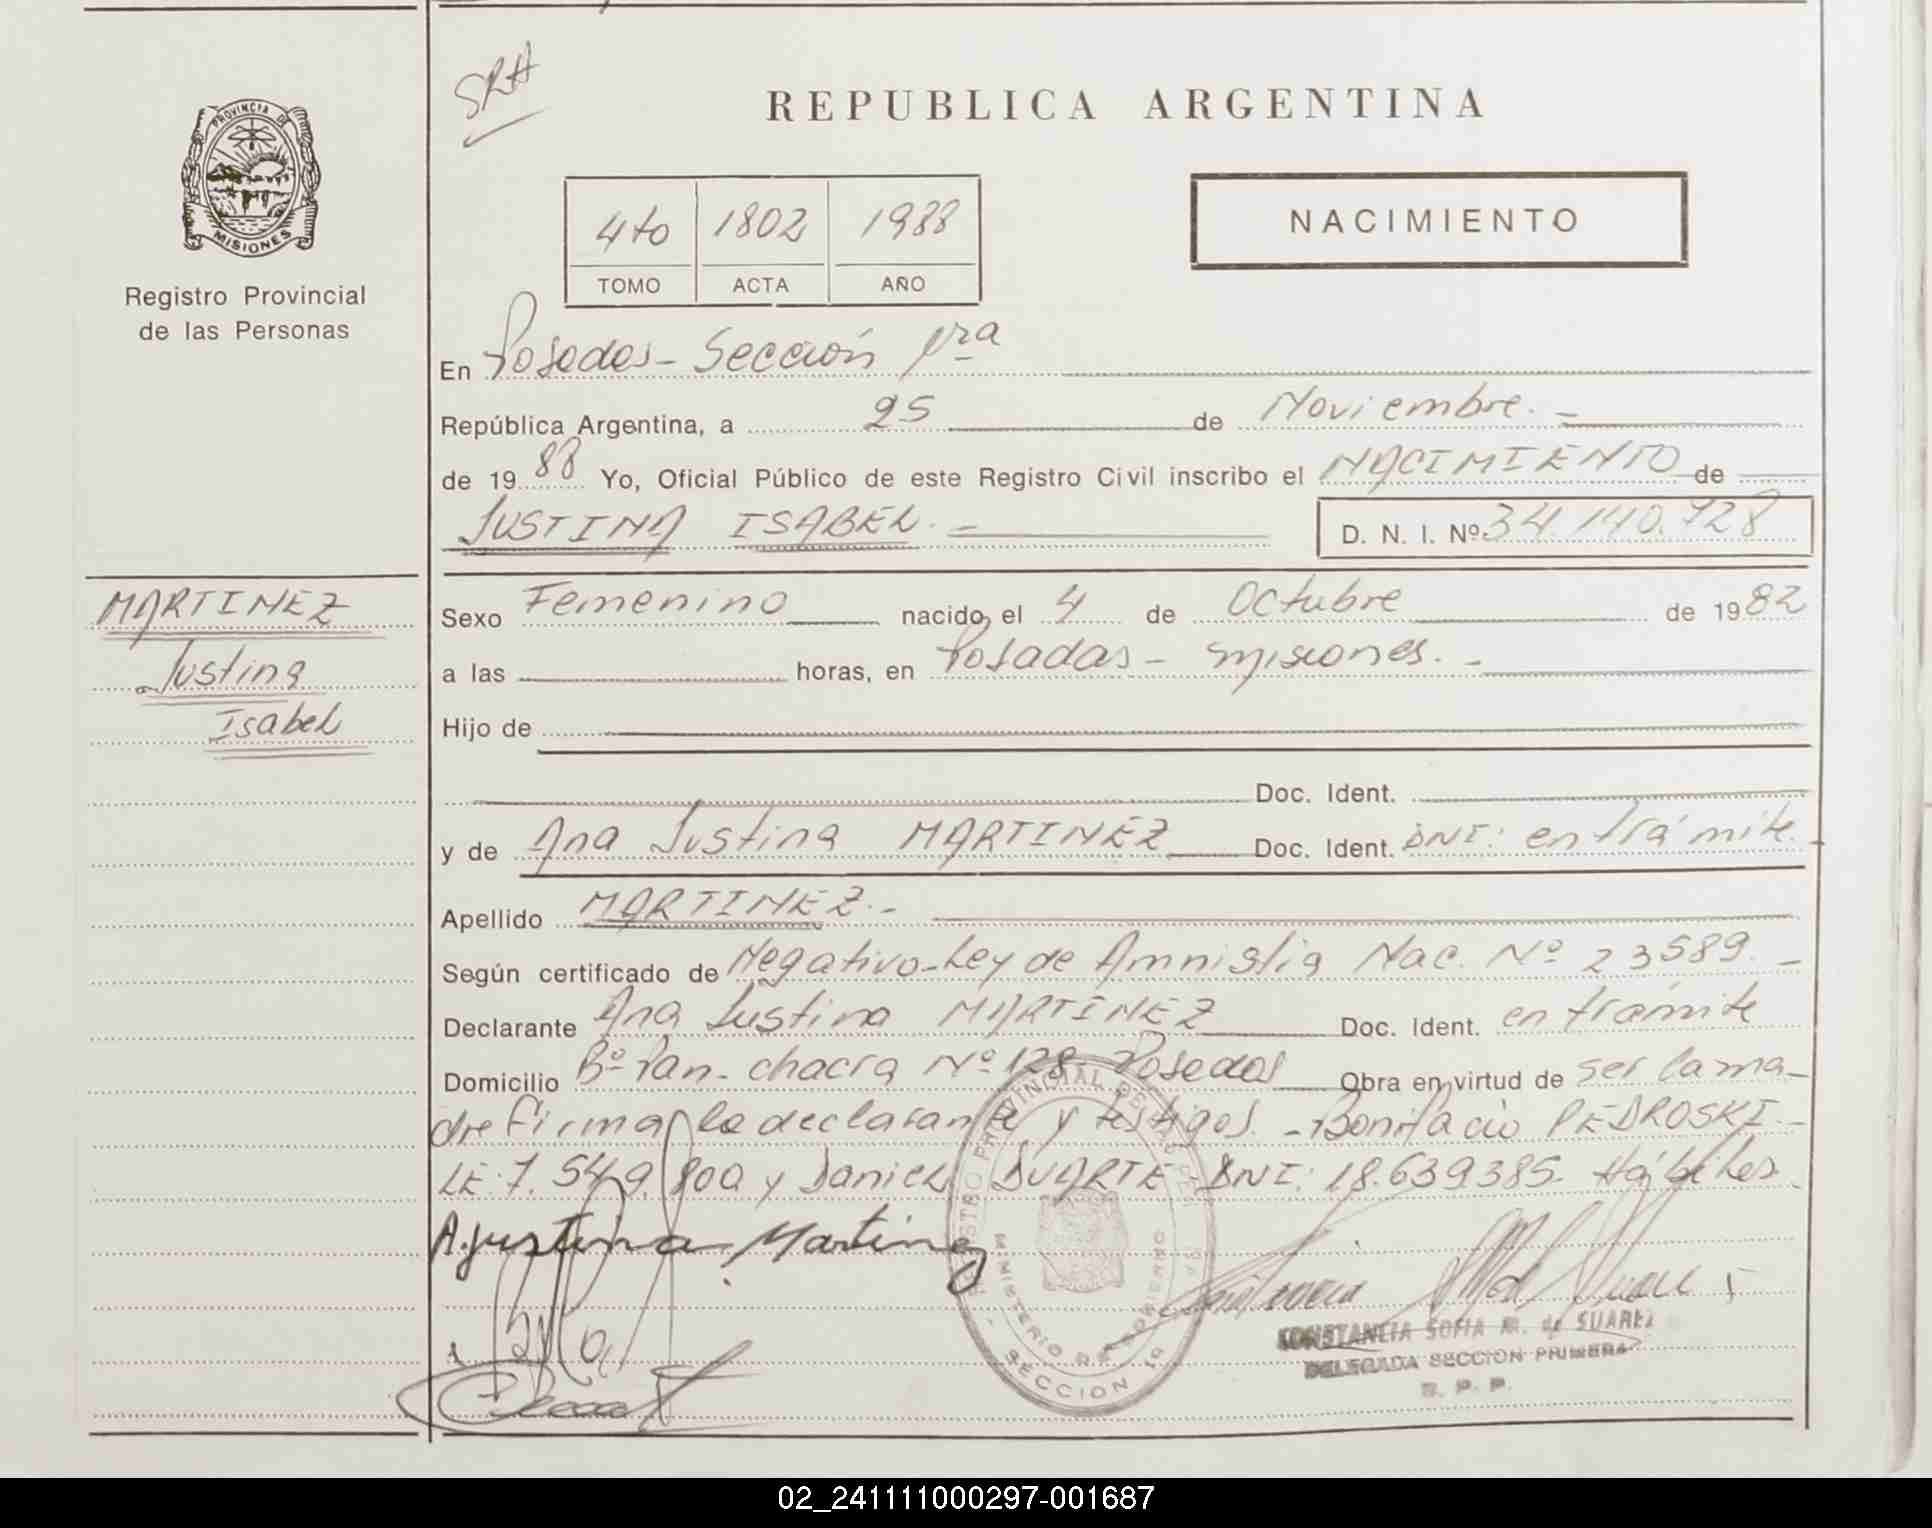 SRA
PROVINCIA DE
MISIONES
Registro Provincial
de las Personas
REPUBLICA ARGENTINA
4to 1802 1988
TOMO ACTA AÑO
NACIMIENTO
En Posadas - Sección 1ra
República Argentina, a 25 de Noviembre. -
de 19 88 Yo, Oficial Público de este Registro Civil inscribo el NACIMIENTO de
JUSTINA ISABEL. -
D. N. I. Nº 34.140.728
MARTINEZ
Justina
Isabel
Sexo Femenino nacido, el 4 de Octubre de 1982
a las horas, en Posadas - Misiones. -
Hijo de
Doc. Ident.
y de Ana Justina MARTINEZ Doc. Ident. DNI: en trámite.
Apellido MARTINEZ. -
Según certificado de Negativo - Ley de Amnistia Nac. Nº 23589. -
Declarante Ana Justina MARTINEZ Doc. Ident. en trámite
Domicilio Bº Pan. chacra Nº 128 - Posadas Obra en virtud de ser la ma-
dre firma la declarante y testigos. - Bonifacio PEDROSKI. -
LE: 7.549.800 y Daniel DUARTE - DNI: 18.639385. Hábiles.
A. justina Martinez
CONSTANCIA SOFIA M. de SUAREZ
DELEGADA SECCION PRIMERA
R. P. P.
MINISTERIO DE GOBIERNO
SECCION 1ª
02_241111000297-001687